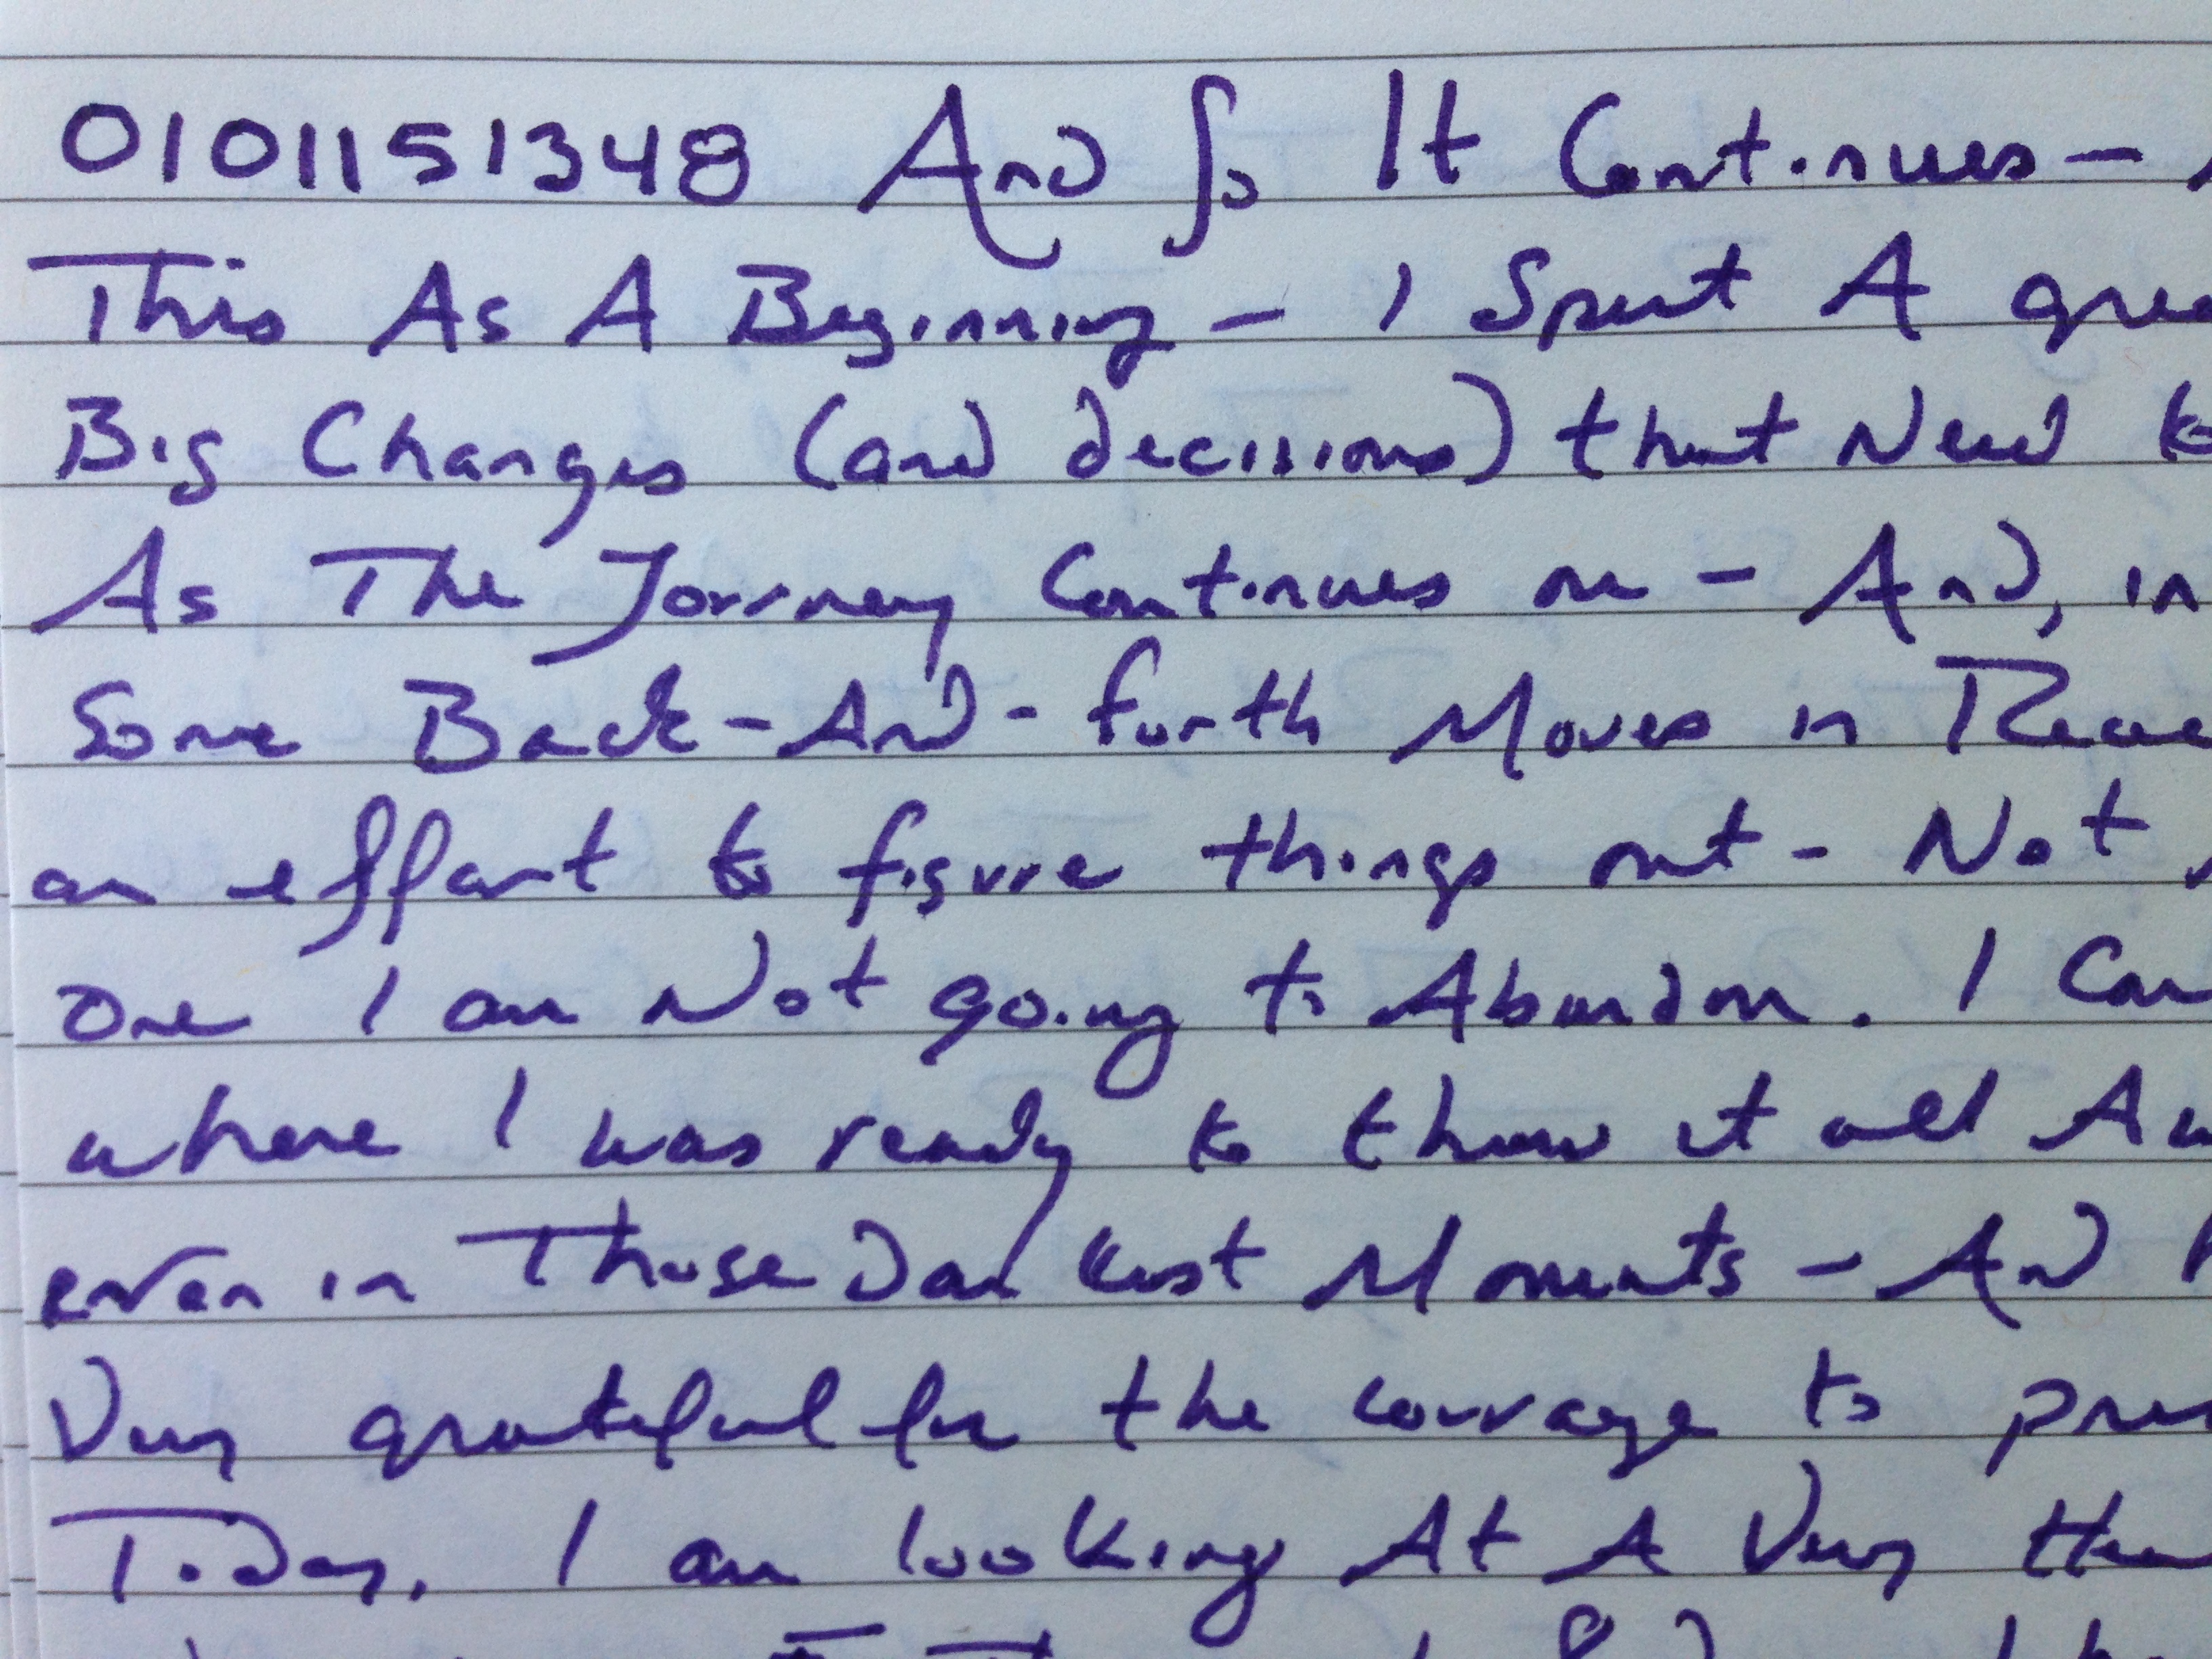 0101151348 And So It Continues —
This As A Beginning — I Spent A grea
Big Changes (and decisions) that Need to
As The Journey Continues on — And, in
Some Back-And-forth Moves in These
an effort to figure things out - Not
one I am Not going to Abandon. I Can
where I was ready to throw it all Aw
even in Those Darkest Moments — And
Very grateful for the courage to pres
Today. I am looking At A Very